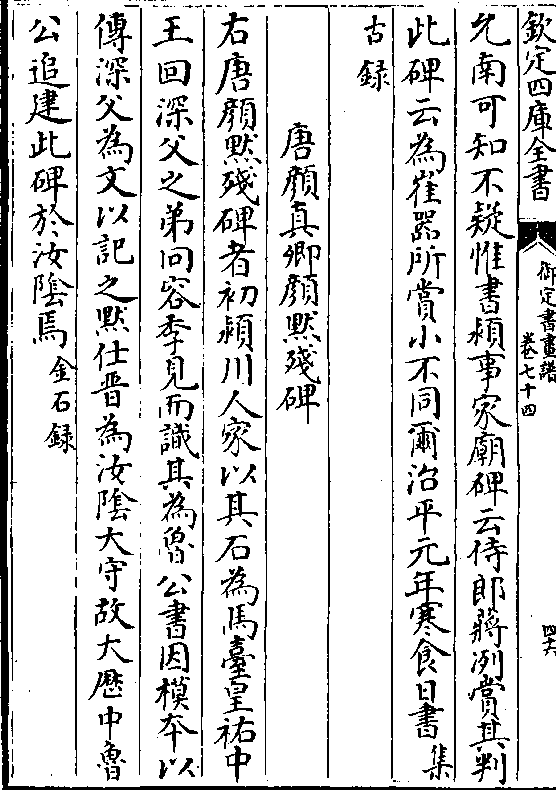 欽定四庫全書
御定書畫譜
卷七十四
四六
允南可知不疑惟書頻事家廟碑云侍郎蔣洌賞其判
此碑云為崔器所賞小不同爾治平元年寒食日書集
古録
唐顔真卿顔默殘碑
右唐顔默殘碑者初潁川人家以其石為馬臺皇祐中
王回深父之弟冋容季見而識其為魯公書因模本以
傳深父為文以記之默仕晋為汝隂大守故大厯中魯
公追建此碑於汝隂焉金石録